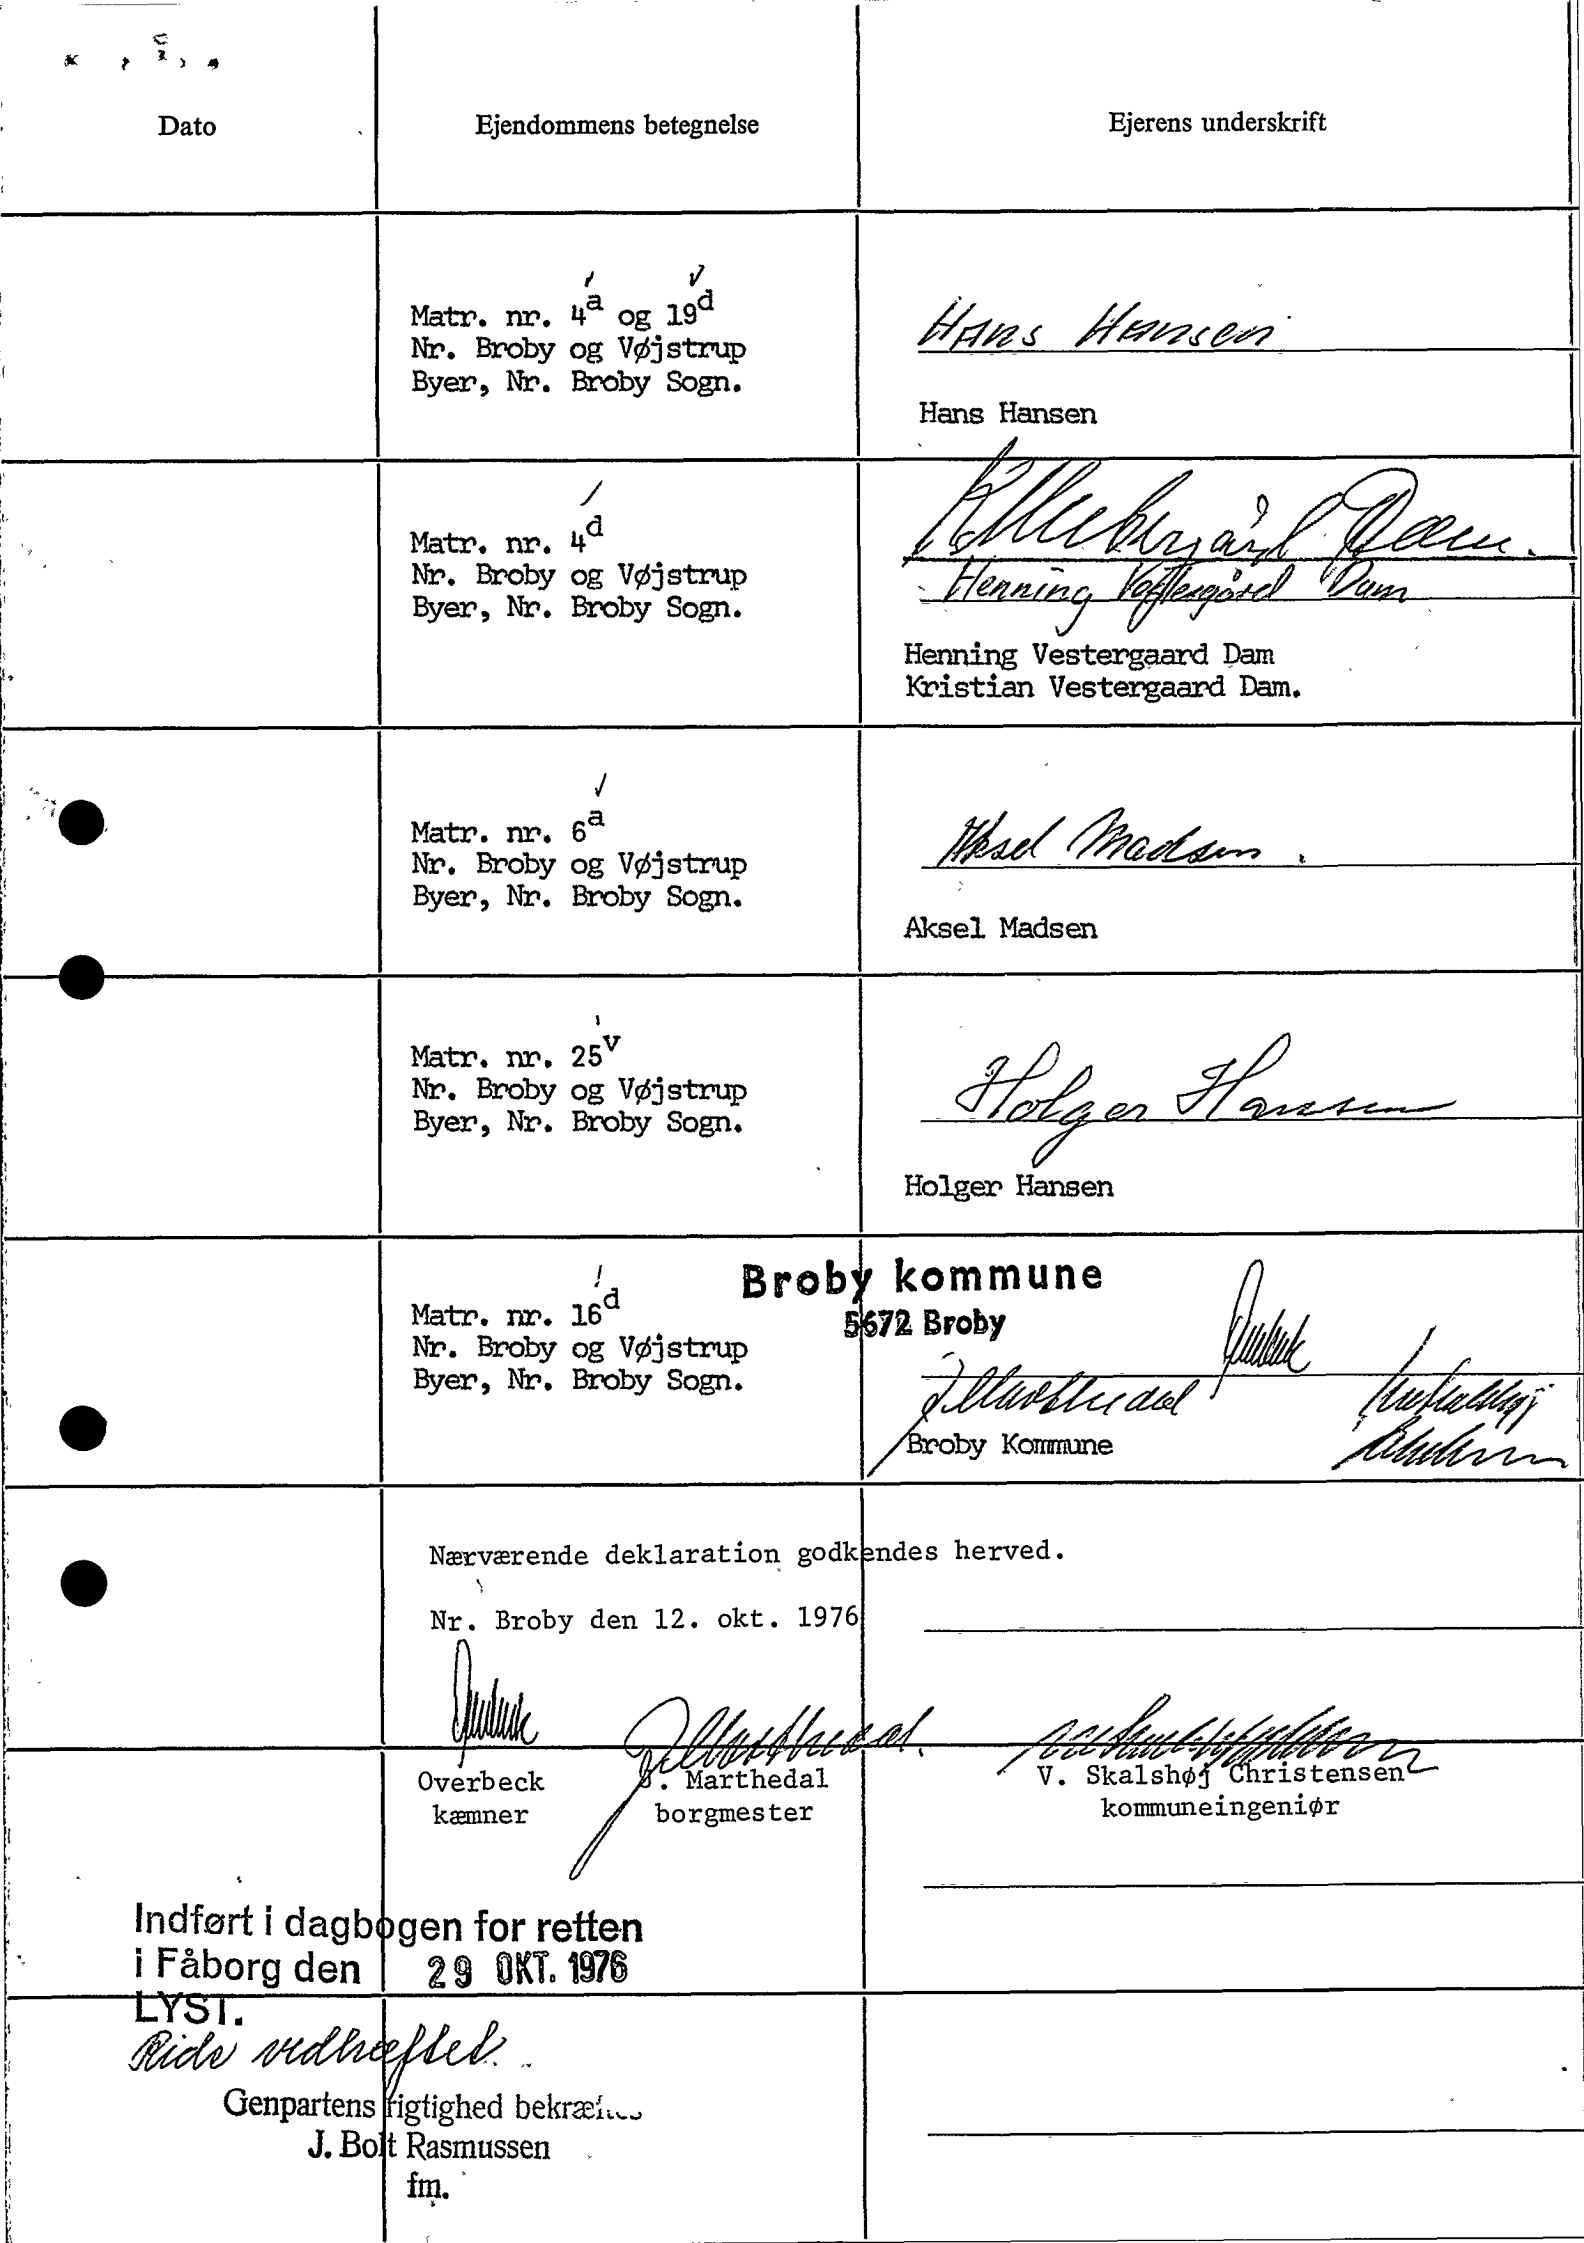 Dato
Ejendommens betegnelse
Ejerens underskrift
Matr. nr. 4a og 19d
Nr. Broby og Vøjstrup
Byer, Nr. Broby Sogn.
Hans Hansen
Hans Hansen
Matr. nr. 4d
Nr. Broby og Vøjstrup
Byer, Nr. Broby Sogn.
K Vestergård Dam.
Henning Vestergård Dam
Henning Vestergaard Dam
Kristian Vestergaard Dam.
Matr. nr. 6a
Nr. Broby og Vøjstrup
Byer, Nr. Broby Sogn.
Aksel Madsen.
Aksel Madsen
Matr. nr. 25v
Nr. Broby og Vøjstrup
Byer, Nr. Broby Sogn.
Holger Hansen
Holger Hansen
Broby kommune
5672 Broby
Matr. nr. 16d
Nr. Broby og Vøjstrup
Byer, Nr. Broby Sogn.
Broby Kommune
Nærværende deklaration godkendes herved.
Nr. Broby den 12. okt. 1976
Overbeck
kæmner
Marthedal
borgmester
V. Skalshøj Christensen
kommuneingeniør
Indført i dagbogen for retten
i Fåborg den 29 OKT. 1976
LYST.
Rids vedhæftet.
Genpartens rigtighed
J. Bolt Rasmussen
fm.